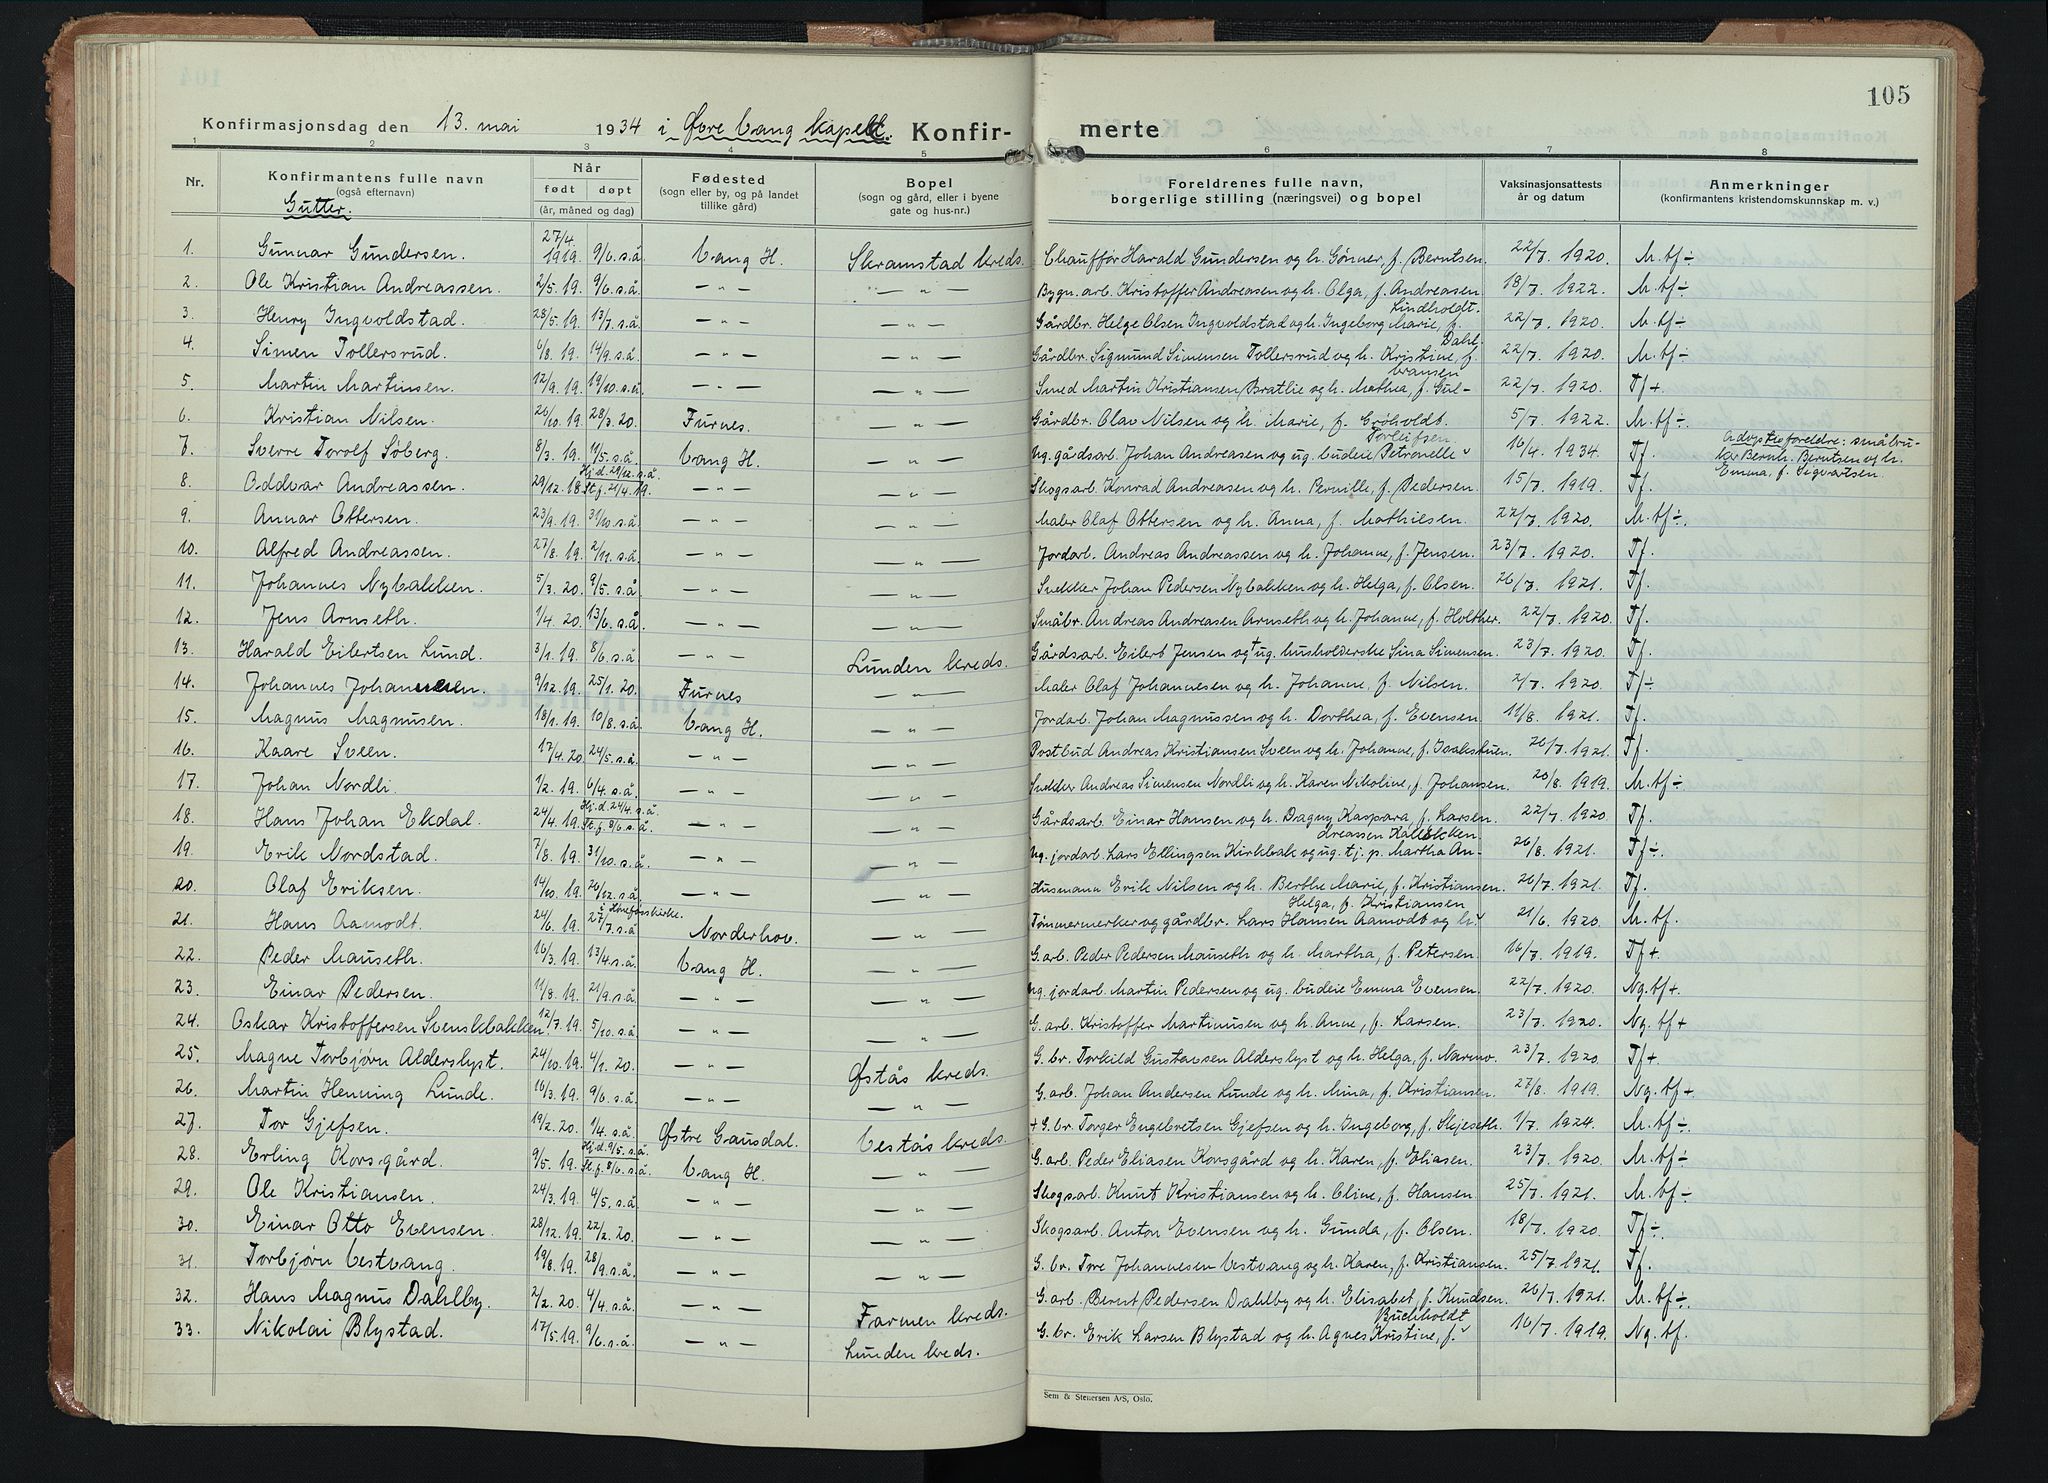 105
Konfirmasjonsdag den 13. mai 1934 i Øvre Vang kapell. Konfir- merte
1 2 3 4 5 6 7 8
Nr. Konfirmantens fulle navn (også efternavn) Når født døpt (år, måned og dag) Fødested (sogn eller by, og på landet tillike gård) Bopel (sogn og gård, eller i byene gate og hus-nr.) Foreldrenes fulle navn, borgerlige stilling (næringsvei) og bopel Vaksinasjonsattests år og datum Anmerkninger (konfirmantens kristendomskunnskap m. v.)
Gutter.
1. Gunnar Gundersen. 27/4. 1919. 9/6. s.å. Vang H. Skramstad kreds. Chauffør Harald Gundersen og h. Gønner, f. Berntsen. 22/7. 1920. M. tf ÷
2. Ole Kristian Andreassen. 2/5. 19. 9/6. s.å. — " — — " — Bygn. arb. Kristoffer Andreasen og h. Olga, f. Andreasen 18/7. 1922. M. tf ÷
3. Henry Ingvoldstad. 28/5. 19. 13/7. s.å. — " — — " — Gårdbr. Helge Olsen Ingvoldstad og h. Ingeborg Marie, f. Lindholdt. 22/7. 1920. M. tf ÷
4. Simen Tollersrud. 6/8. 19. 14/9. s.å. — " — — " — Gårdbr. Sigmund Simensen Tollersrud og h. Kristine, f. Dahl. 22/7. 1920. M. tf ÷
5. Martin Martinsen. 12/9. 19. 19/10. s.å. — " — — " — Smed Martin Kristiansen Bratlie og h. Mathea, f. Gulbransen 22/7. 1920. Tf +
6. Kristian Nilsen. 26/10. 19. 28/3. 20. Furnes. — " — Gårdbr. Olav Nilsen og h. Marie, f. Grøholdt. 5/7. 1922. M. tf ÷
7. Sverre Torolf Søberg. 8/3. 19. 11/5. s.å. Vang H. — " — Ug. gårdsarb. Johan Andreasen og ug. budeie Petronelle Torleifsen 16/4. 1934. Tf. Adoptivforeldre: småbruker Bernh. Berntsen og h. Emma, f. Sigvartsen.
8. Oddvar Andreassen. 29/12. 18. Hj.d. 29/12. s.å. St.f. 21/4. 19. — " — — " — Skogsarb. Konrad Andreasen og h. Pernille, f. Pedersen. 15/7. 1919. Tf.
9. Annar Ottersen. 23/9. 19. 31/10. s.å. — " — — " — Maler Olaf Ottersen og h. Anna, f. Mathiesen. 22/7. 1920. M. tf ÷.
10. Alfred Andreassen. 27/8. 19. 2/11. s.å. — " — — " — Jordarb. Andreas Andreassen og h. Johanne, f. Jensen. 23/7. 1920. Tf.
11. Johannes Nybakken. 5/3. 20. 9/5. s.å. — " — — " — Snekker Johan Pedersen Nybakken og h. Helga, f. Olsen. 26/7. 1921. Tf.
12. Jens Arnseth. 1/4. 20. 13/6. s.å. — " — — " — Småbr. Andreas Andreasen Arnseth og h. Johanne, f. Holther. 22/7. 1920. Tf.
13. Harald Eilertsen Lund. 3/1. 19. 8/6. s.å. — " — Lunden kreds. Gårdsarb. Eilert Jensen og + ug. husholderske Sina Simensen. 23/7. 1920. Tf.
14. Johannes Johannesen. 9/12. 19. 25/1. 20. Furnes — " — Maler Olaf Johannesen og h. Johanne, f. Nilsen. 2/7. 1920. Tf ÷
15. Magnus Magnusen. 18/1. 19. 10/8. s.å. Vang H. — " — Jordarb. Johan Magnussen og h. Dorthea, f. Evensen 11/8. 1921. Tf.
16. Kaare Sveen. 17/4. 20. 24/5. s.å. — " — — " — Postbud Andreas Kristiansen Sveen og h. Johanne, f. 26/7. 1921. Tf.
17. Johan Nordli. 1/2. 19. 6/4. s.å. — " — — " — Snekker Andreas Simensen Nordli og h. Karen Nikoline, f. Johansen. 20/8. 1919. M. tf ÷
18. Hans Johan Ekdal. 24/4. 19. Hj.d. 24/4. s.å. St.f. 9/6. s.å. — " — — " — Gårdsarb. Einar Hansen og h. Dagny Kaspara, f. Larsen. 22/7. 1920. Tf.
19. Erik Nordstad. 7/8. 19. 31/10. s.å. — " — — " — Ug. jordarb. Lars Ellingsen Kirkbak og ug. tj. p. Martha Andreassen 26/8. 1921. Tf ÷.
20. Olaf Eriksen. 14/10. 19. 26/12. s.å. — " — — " — Husmann Erik Nilsen og h. Berthe Marie, f. Kristiansen. 26/7. 1921. Tf.
21. Hans Aamodt. 24/6. 19. i Hønefosskirke. 27/7. s.å Norderhov. — " — Tømmermerker og gårdbr. Lars Hansen Aamodt og h. Helga, f. Kristiansen 21/6. 1920. M. tf.
22. Peder Mauseth. 16/3. 19. 13/4. s.å. Vang H. — " — G. arb. Peder Pedersen Mauseth og h. Martha, f. Petersen. 16/7. 1919. Tf +
23. Einar Pedersen. 11/8. 19. 21/9. s.å. — " — — " — Ug. jordarb. Martin Pedersen og ug. budeie Emma Evensen. 22/7. 1920. Ng. tf +
24. Oskar Kristoffersen Svenskbakken. 12/7. 19. 5/10. s.å. — " — — " — G. arb. Kristoffer Martinusen og h. Anne, f. Larsen. 23/7. 1920. Ng. tf +
25. Magne Torbjørn Alderslyst. 24/10. 19. 4/1. 20. — " — Østås kreds. G. br. Torkild Gustavsen Alderslyst og h. Helga, f. Narmo. 23/7. 1920. Tf +
26. Martin Henning Lunde. 16/3. 19. 9/6. s.å. — " — — " — G. arb. Johan Andersen Lunde og h. Mina, f. Kristiansen. 27/8. 1919. Ng. tf +
27. Tor Gjefsen. 19/2. 20. 1/4. s.å. Østre Gausdal. Vestås kreds. + G. br. Torger Engebretsen Gjefsen og h. Ingeborg, f. Skjeseth. 1/7. 1924. M. tf ÷.
28. Erling Korsgård. 9/5. 19. Hj.d. 9/5. s.å. St.f. 8/6. s.å. Vang H. — " — G. arb. Peder Eliasen Korsgård og h. Karen, f. Eliasen. 23/7. 1920. M. tf ÷
29. Ole Kristiansen. 24/3. 19. 4/5. s.å — " — — " — Skogsarb. Knut Kristiansen og h. Oline, f. Hansen 25/7. 1921. M. tf ÷.
30. Einar Otto Evensen. 28/12. 19. 22/2. 20. — " — — " — Skogsarb. Anton Evensen og h. Gunda, f. Olsen. 18/7. 1920. Tf ÷.
31. Torbjørn Vestvang. 19/8. 19. 28/9. s.å. — " — — " — G. br. Tore Johannesen Vestvang og h. Karen, f. Kristiansen. 25/7. 1921. Tf.
32. Hans Magnus Dahlby. 2/2. 20. 4/4. s.å. — " — Farmen kreds. G. arb. Bernt Pedersen Dahlby og h. Elisabet, f. Knudsen. 26/7. 1921. M. tf ÷.
33. Nikolai Blystad. 17/5. 19. 9/6. s.å. — " — Lunden kreds. G. br. Erik Larsen Blystad og h. Agnes Kristine, f. Buchholdt 16/7. 1919. Ng. tf.
Sem & Stenersen A/S, Oslo.